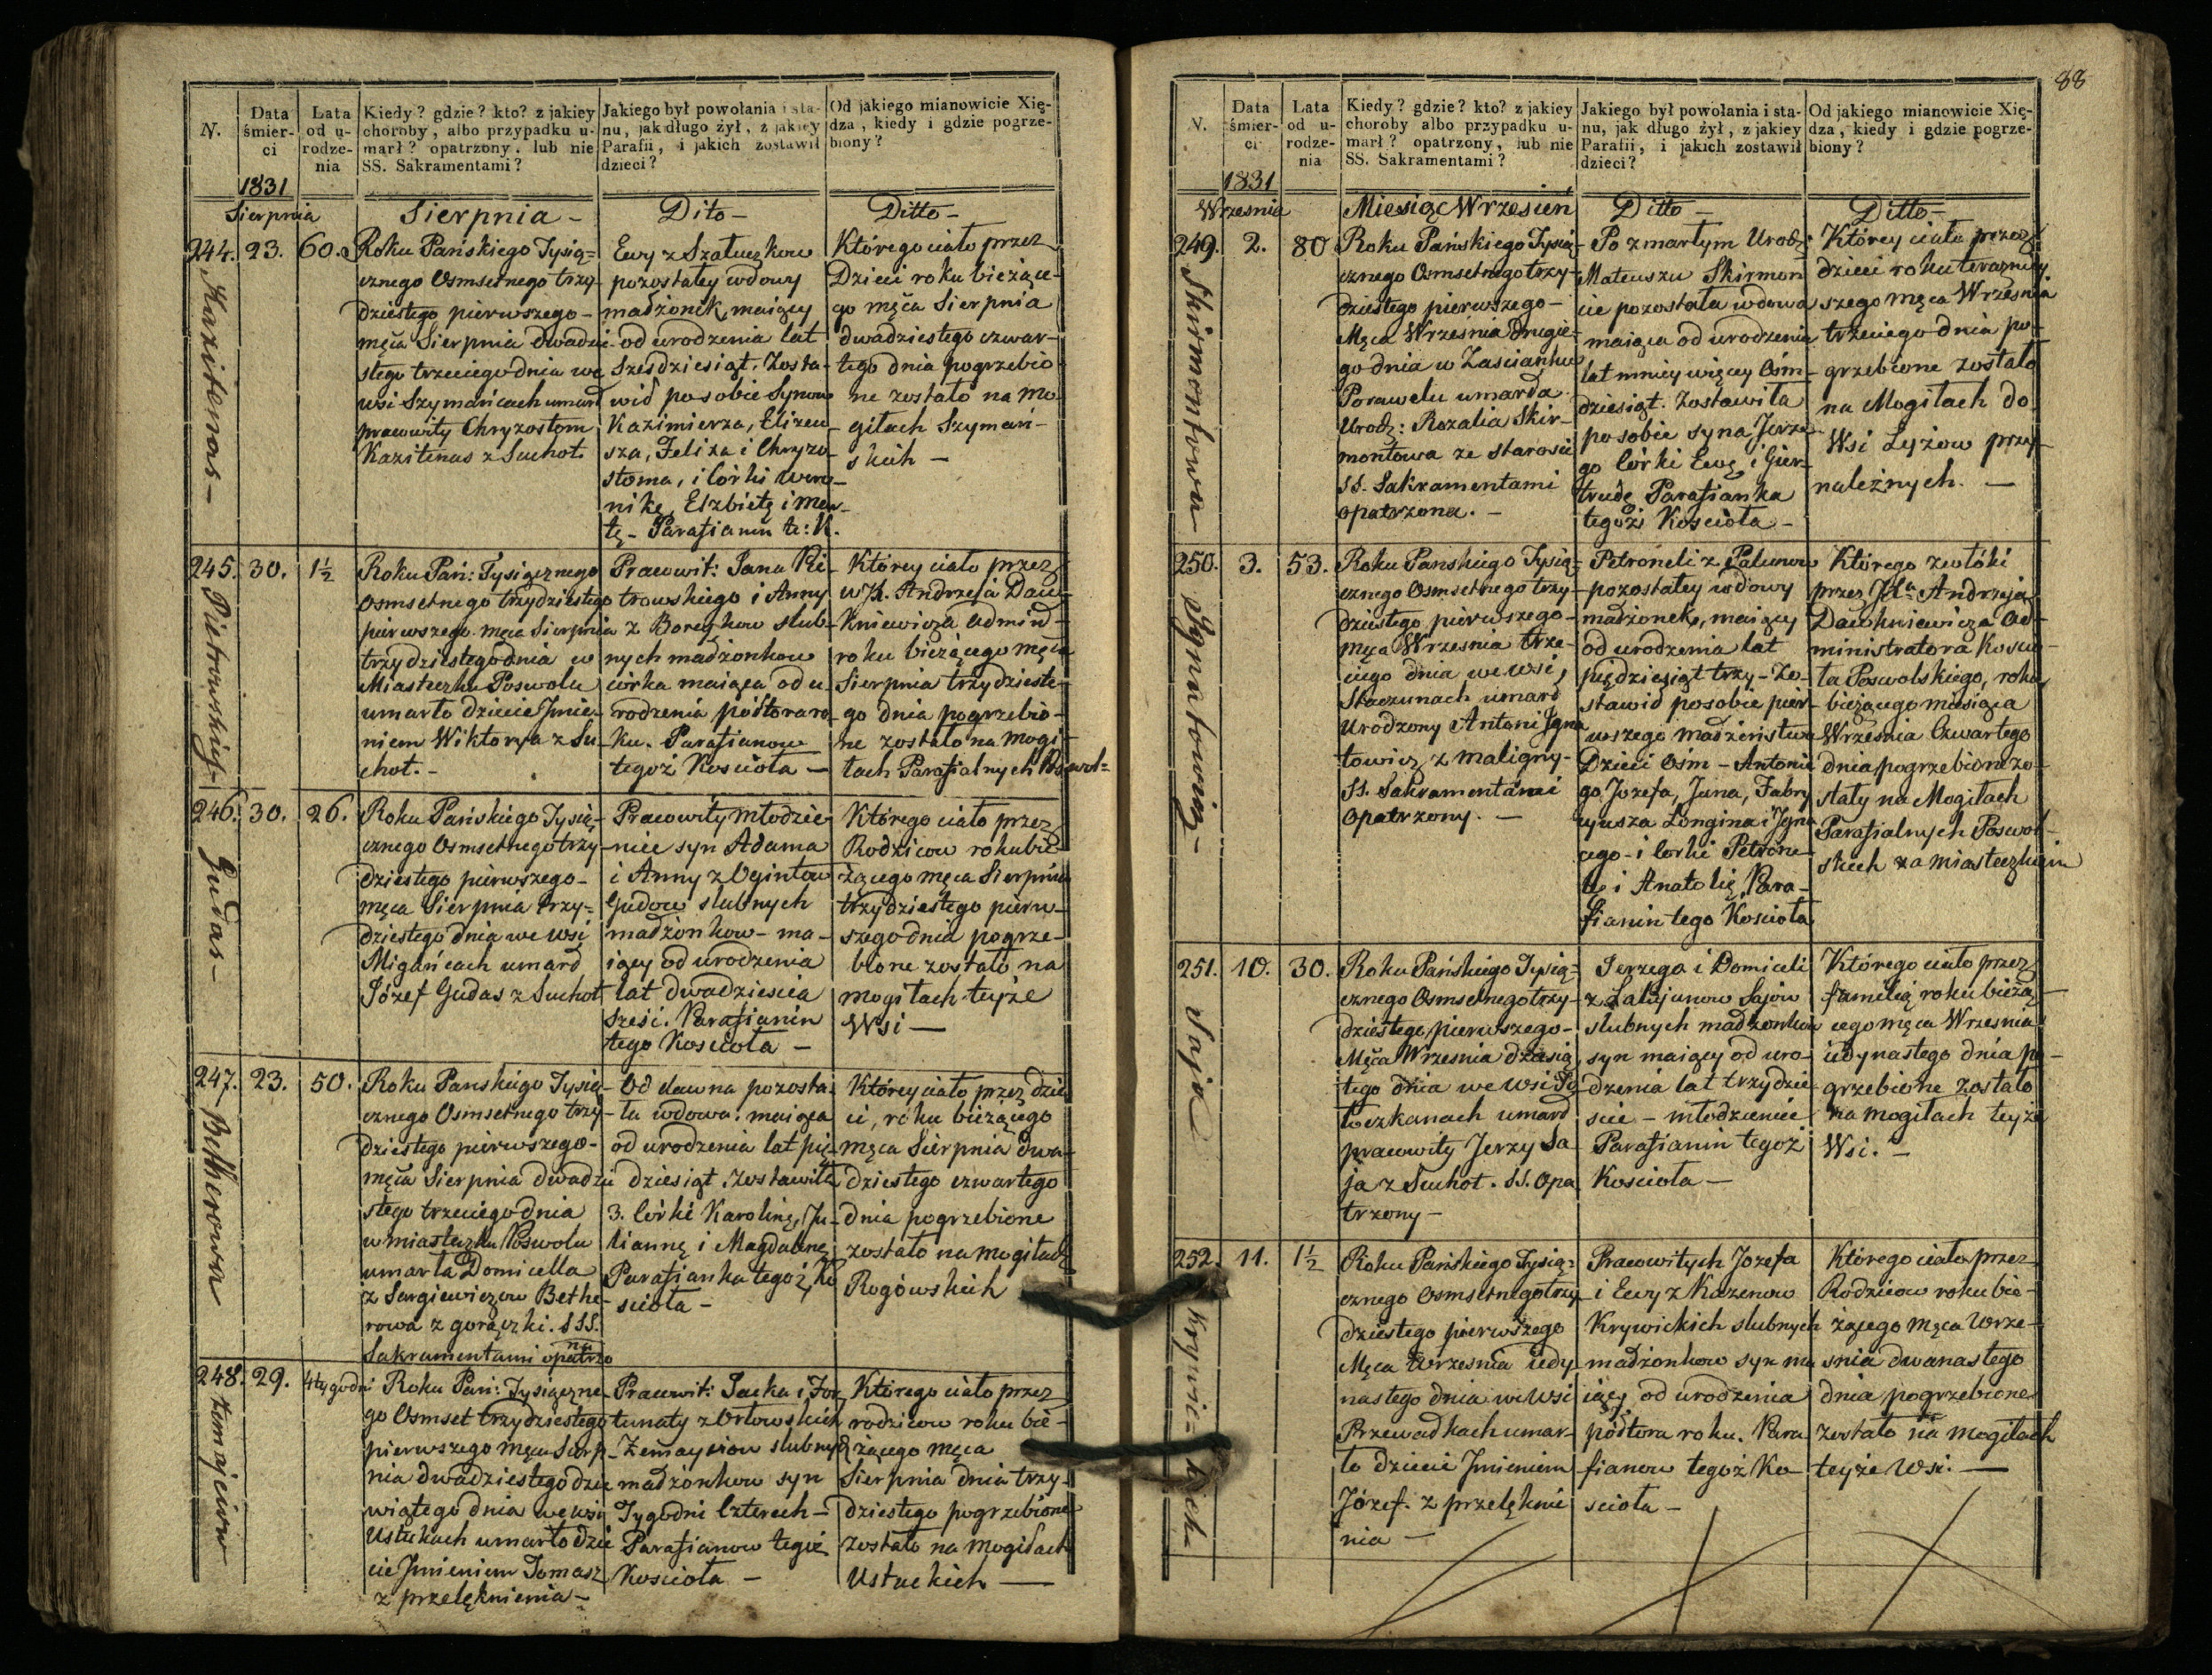 88
N.
Data śmier-ci
Lata od u-rodze-nia
Kiedy? gdzie? kto? z jakiey
choroby, albo przypadku u-
marł? opatrzony, lub nie
SS. Sakramentami?
Jakiego był powołania i sta-
nu, jak długo żył, z jakiey
Parafii, i jakich zostawił
dzieci?
Od jakiego mianowicie Xię-
dza, kiedy i gdzie pogrze-
biony?
1831
Sierpnia
Sierpnia -
Dito -
Ditto -
244. 23. 60.
Kazitenas -
Roku Pańskiego Tysią=
cznego Osmsetnego trzy-
dziestego pierwszego -
męca Sierpnia dwadzie-
stego trzeciego dnia we
wsi Szymańcach umarł
pracowity Chryzostom
Kazitenas z Suchot.
Ewy z Szałuczkow
pozostałey wdowy
małżonek, maiący
od urodzenia lat
Szesdziesiąt. Zosta-
wił po sobie Synow
Kazimierza, Elizeu-
sza, Felixa i Chryzo-
stoma, i Córki Wero-
nikę, Elzbietę i Mar-
tę - Parafianin te: K.
Którego ciało przez
Dzieci roku bieżące-
go męca Sierpnia
dwadziestego czwar-
tego dnia pogrzebio
ne zostało na mo
giłach Szymań-
skich -
245. 30. 1½
Pietrowskich -
Roku Pań: Tysiącznego
Osmsetnego trzydziestego
pierwszego męca Sierpnia
trzydziestego dnia w
Miasteczku Poswolu
umarło dziecie Jmie-
niem Wiktorya z Su-
chot. -
Pracowit: Jana Pie-
trowskiego i Anny
z Boreykow slub-
nych małżonkow
córka maiąca od u
rodzenia półtora ro
ku. Parafianow
tegoż Kościoła -
Którey ciało przez
WJX. Andrzeja Daw-
kniewicza Admin-
roku bieżącego męca
Sierpnia trzydzieste-
go dnia pogrzebio-
ne zostało na mogi-
łach Parafialnych Poswol=
246. 30. 26.
Gudas -
Roku Pańskiego Tysią-
cznego Osmsetnego trzy-
dziestego pierwszego -
męca Sierpnia trzy-
dziestego dnia we wsi
Migańcach umarł
Józef Gudas z Suchot
Pracowity młodzie-
niec syn Adama
i Anny z Ogintow
Gudow slubnych
małżonkow - ma-
iący od urodzenia
lat dwadzieścia
sześć. Parafianin
tego Kościoła -
Którego ciało przez
Rodzicow roku bie
żącego męca Sierpnia
trzydziestego pierw-
szego dnia pogrze-
bione zostało na
mogiłach teyże
Wsi -
247. 23. 50.
Betherowa
Roku Panskiego Tysią-
cznego Osmsetnego trzy-
dziestego pierwszego -
męca Sierpnia dwadzie
stego trzeciego dnia
w miasteczku Poswolu
umarła Domicella
z Sergiewiczow Bethe-
rowa z gorączki. SSS.
Sakramentami opatrzo
na
Od dawna pozosta-
ła wdowa, maiąca
od urodzenia lat pię-
dziesiąt. Zostawiła
3. Córki Karolinę, Ju-
liannę i Magdalenę
Parafianka tegoż Ko
scioła -
Którey ciało przez dzie
ci, roku bieżącego
męca Sierpnia dwa-
dziestego czwartego
dnia pogrzebione
zostało na mogiłach
Rogówskich
248. 29. 4 tygodni
Żemajciow
Roku Pań: Tysiączne-
go Osmset trzydziestego
pierwszego męca Sierp-
nia dwadziestego dzie
wiątego dnia we wsi
Ustukach umarło dzie
cie Jmieniem Tomasz
z przelęknienia -
Pracowit: Jacka i For-
tunaty z Orłowskich
Żemayciow slubnych
małżonkow syn
Tygodni Czterech -
Parafianow tegoż
Kościoła -
Którego ciało przez
rodzicow roku bie-
żącego męca
Sierpnia dnia trzy-
dziestego pogrzebione
zostało na mogiłach
Ustuckich -
N.
Data śmier-ci
Lata od u-rodze-nia
Kiedy? gdzie? kto? z jakiey
choroby albo przypadku u-
marł? opatrzony, lub nie
SS. Sakramentami?
Jakiego był powołania i sta-
nu, jak długo żył, z jakiey
Parafii, i jakich zostawił
dzieci?
Od jakiego mianowicie Xię-
dza, kiedy i gdzie pogrze-
biony?
1831
Wrzesnia
Miesiąc Wrzesień
Ditto -
Ditto -
249. 2. 80
Skirmontowa
Roku Pańskiego Tysią-
cznego Osmsetnego trzy-
dziestego pierwszego -
Męca Września drugie-
go dnia w Zascianku
Porawelu umarła
Urodz: Rozalia Skir-
montowa ze starosci
SS. Sakramentami
opatrzona. -
Po zmarłym Urodz:
Mateuszu Skirmon
cie pozostała wdowa
maiąca od urodzenia
lat mniey więcey Ośm-
dziesiąt. Zostawiła
po sobie syna Jerze-
go Córki Ewę i Gier-
trudę Parafianka
tegoż Kościoła -
Którey ciało przez
dzieci roku teraźniey
szego męca Września
trzeciego dnia po-
grzebione zostało
na Mogiłach do
Wsi Łyżow przy-
należnych. -
250. 3. 53.
Jgnatowicz -
Roku Panskiego Tysią-
cznego Osmsetnego trzy-
dziestego pierwszego -
męca Wrzesnia trze-
ciego dnia we wsi
Staczunach umarł
Urodzony Antoni Jgna
towicz z maligny -
SS. Sakramentami
opatrzony. -
Petroneli z Palunow
pozostałey wdowy
małżonek, maiący
od urodzenia lat
pięćdziesiąt trzy - Zo-
stawił po sobie pier-
wszego małżeństwa
Dzieci Ośm - Antonie
go Jozefa, Jana, Fabry
cyusza Longina i Jgna
cego - i Corki Petrone-
lę i Anatolię, Para-
fianin tego Kościoła
Którego zwłóki
przez JXa Andrzeja
Dawkniewicza Ad-
ministratora Koscio-
ła Poswolskiego, roku
bieżącego miesiąca
Września Czwartego
dnia pogrzebione zo-
stały na Mogiłach
Parafialnych Poswol-
skich za miasteczkiem
251. 10. 30.
Saja
Roku Pańskiego Tysią=
cznego Osmsetnego trzy-
dziestego pierwszego -
Męca Wrzesnia dziesią
tego dnia we wsi
umarł
pracowity Jerzy Sa
ja z Suchot. SS. Opa
trzony -
Jerzego i Domiceli
z Sajów
slubnych małżonkow
syn maiący od uro-
dzenia lat trzydzie
ście - młodzieniec
Parafianin tegoż
Kościoła -
Którego ciało przez
familią roku bieżą-
cego męca Wrzesnia
iedynastego dnia po-
grzebione zostało
na mogiłach teyże
Wsi. -
252. 11. 1½
Krywic=kich
Roku Pańskiego Tysią=
cznego Osmsetnego trzy-
dziestego pierwszego
Męca Wrzesnia iedy
nastego dnia we wsi
Przewadkach umar-
ło dziecie Jmieniem
Józef. z przelęknie
nia -
Pracowitych Jozefa
i Ewy z Kazenow
Krywickich slubnych
małżonkow syn ma
iący od urodzenia
półtora roku. Para
fianow tegoż Ko-
scioła -
Którego ciało przez
Rodzicow roku bie-
żącego męca Wrze-
snia dwanastego
dnia pogrzebione
zostało na mogiłach
teyże Wsi. -